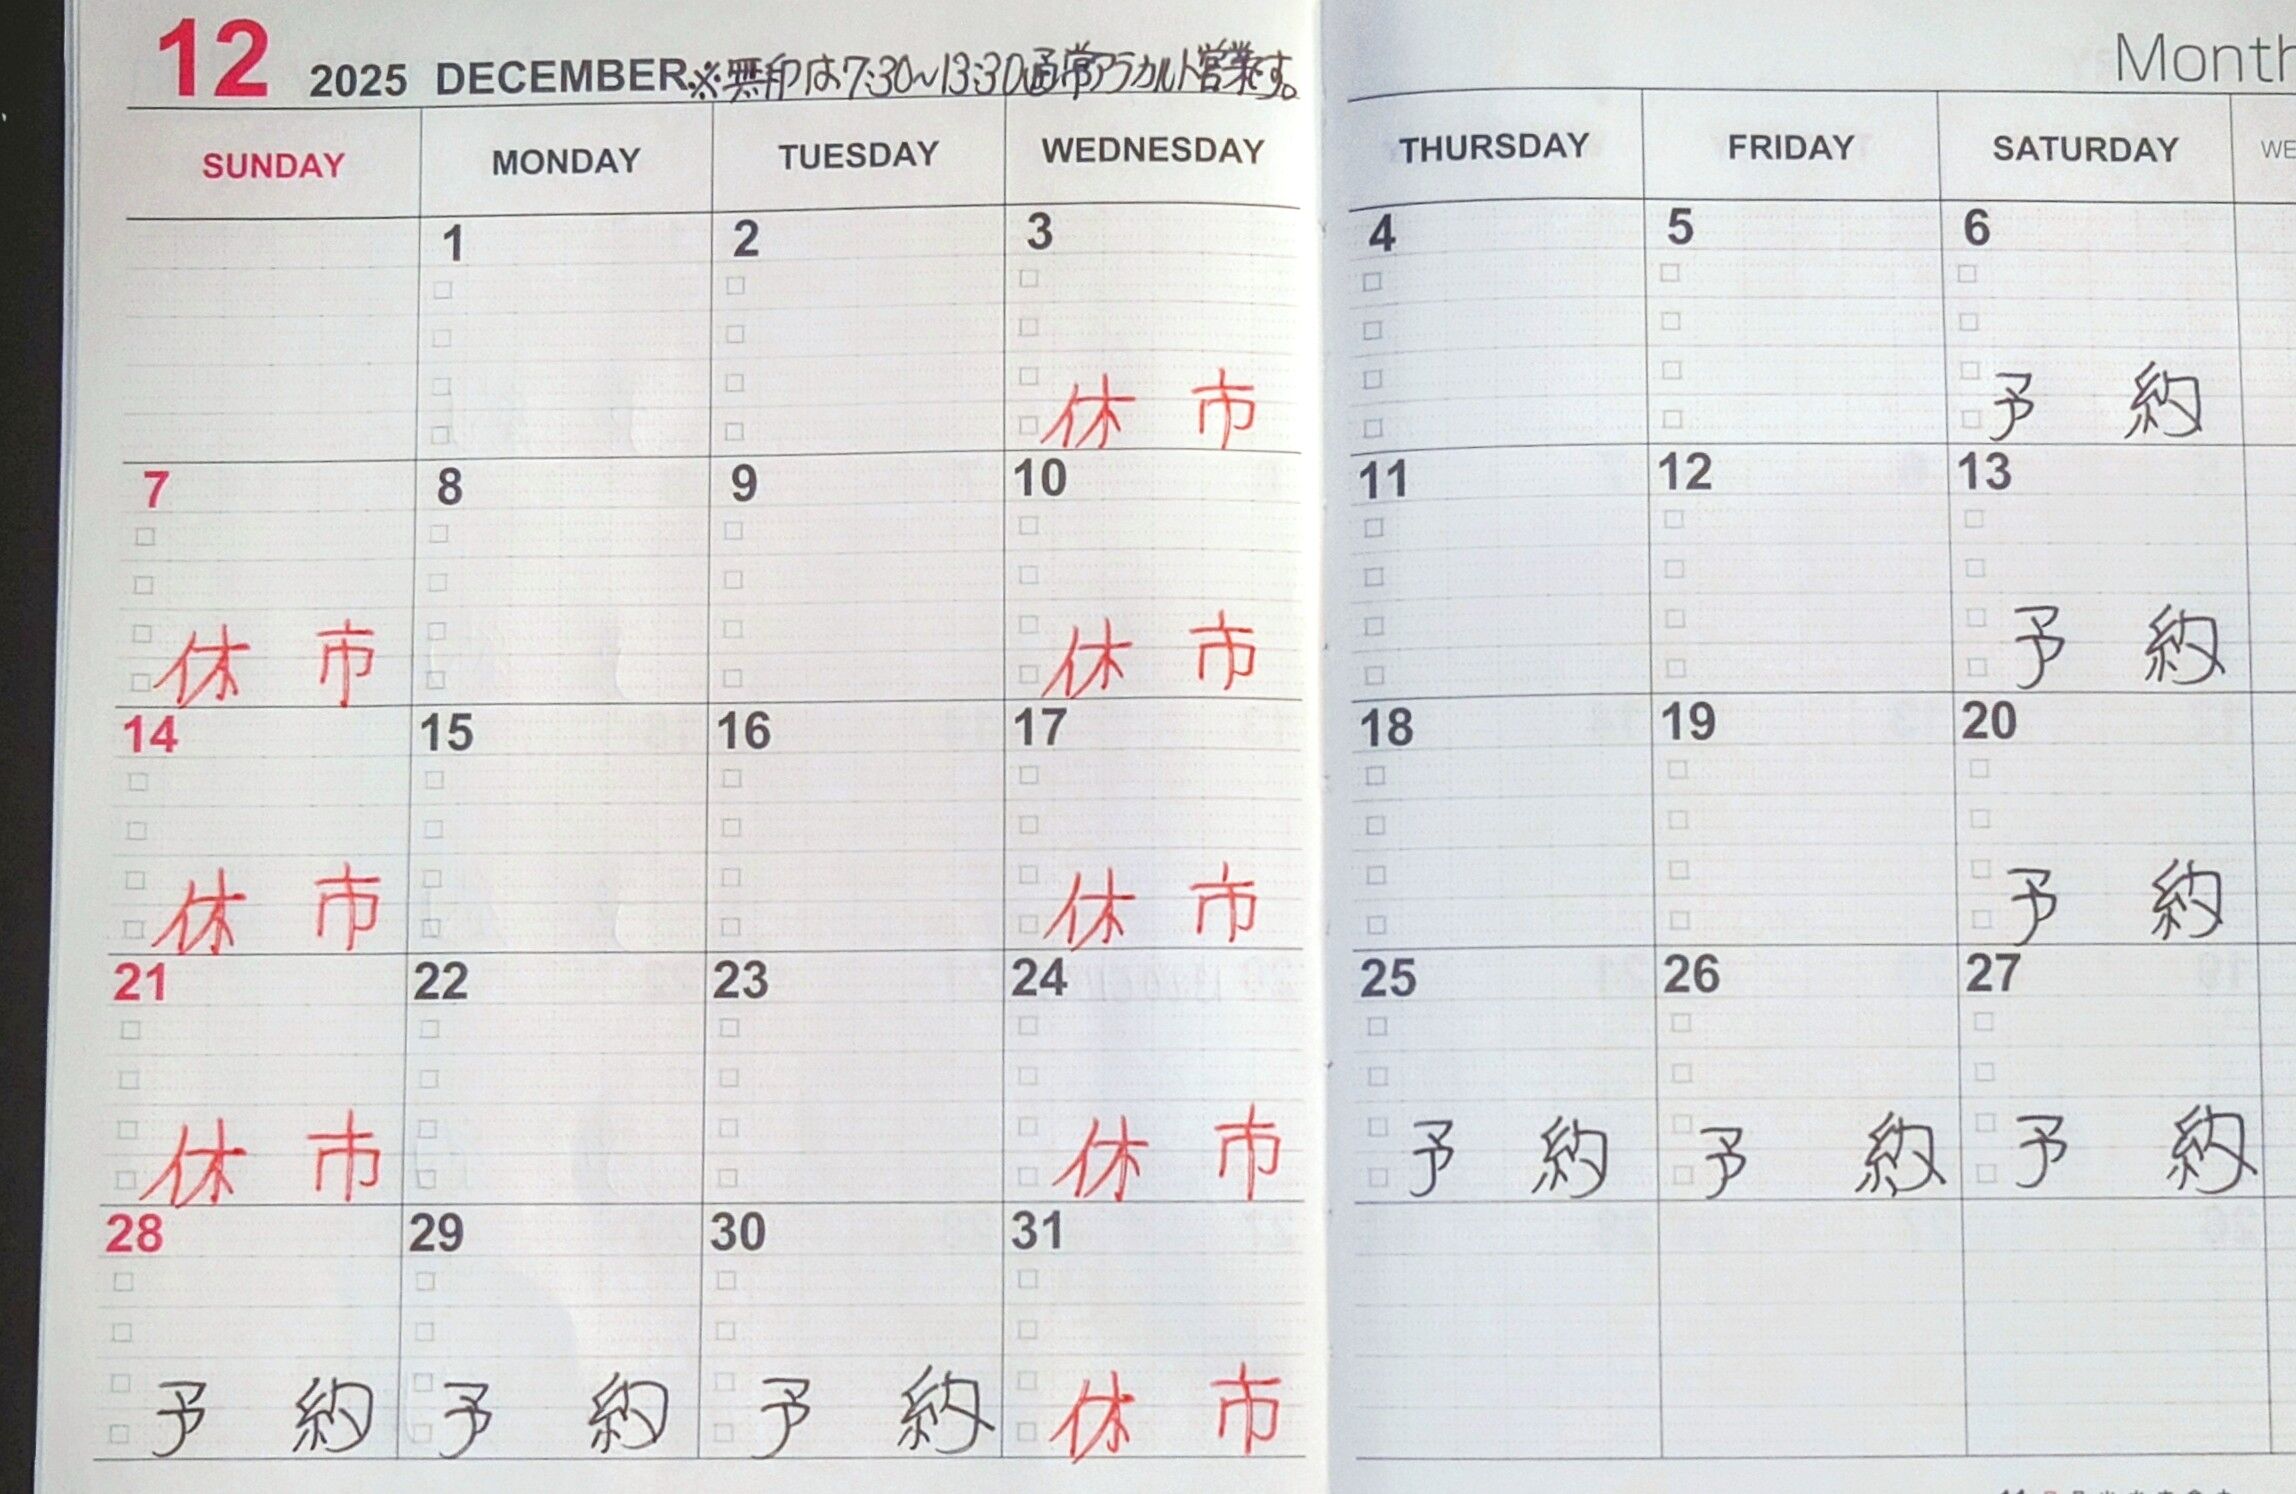 12 2025 DECEMBER ※無印は7:30~13:30通常アラカルト営業です。
Month
SUNDAY MONDAY TUESDAY WEDNESDAY THURSDAY FRIDAY SATURDAY WE
1 2 3 4 5 6
休市 予約
7 8 9 10 11 12 13
休市 休市 予約
14 15 16 17 18 19 20
休市 休市 予約
21 22 23 24 25 26 27
休市 休市 予約 予約 予約
28 29 30 31
予約 予約 予約 休市